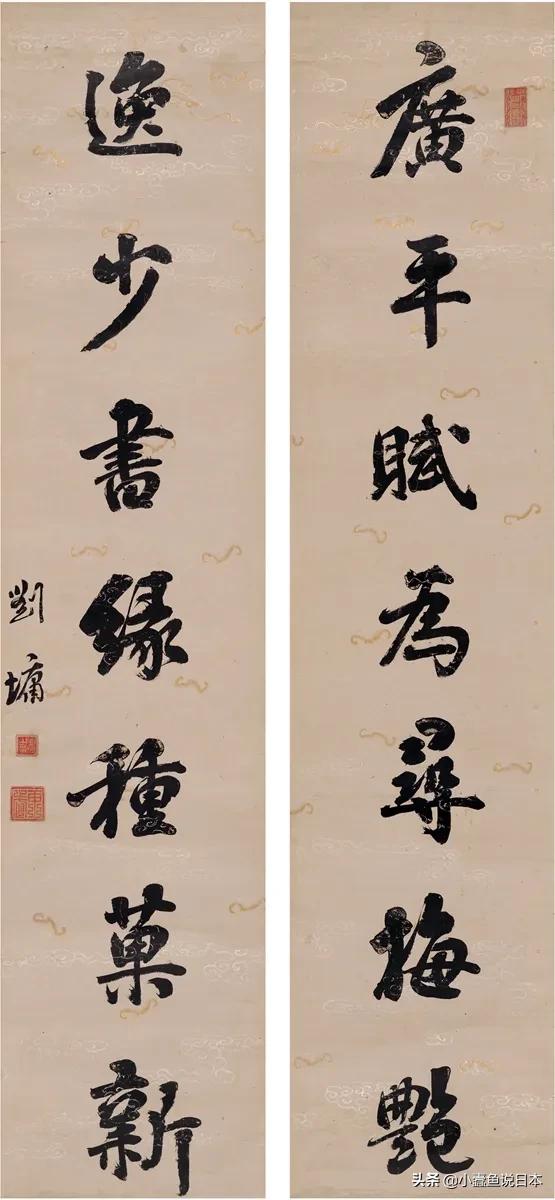 廣平賦為尋梅艷
逸少書緣種菓新
劉墉
头条 @小蠹鱼说日本